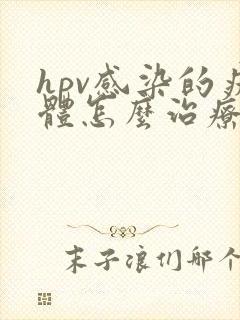 hpv感染的疣
體怎麼治療
末子浪们那个